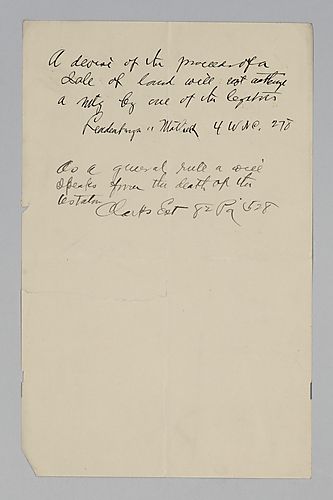 A devise of the proceeds of a
Sale of land will not authorize
a mtg by one of the legatees
4 W.N.C. 270
As a general rule a will
Speaks from the death of the
testator
Clark's Est 82 Pa 528